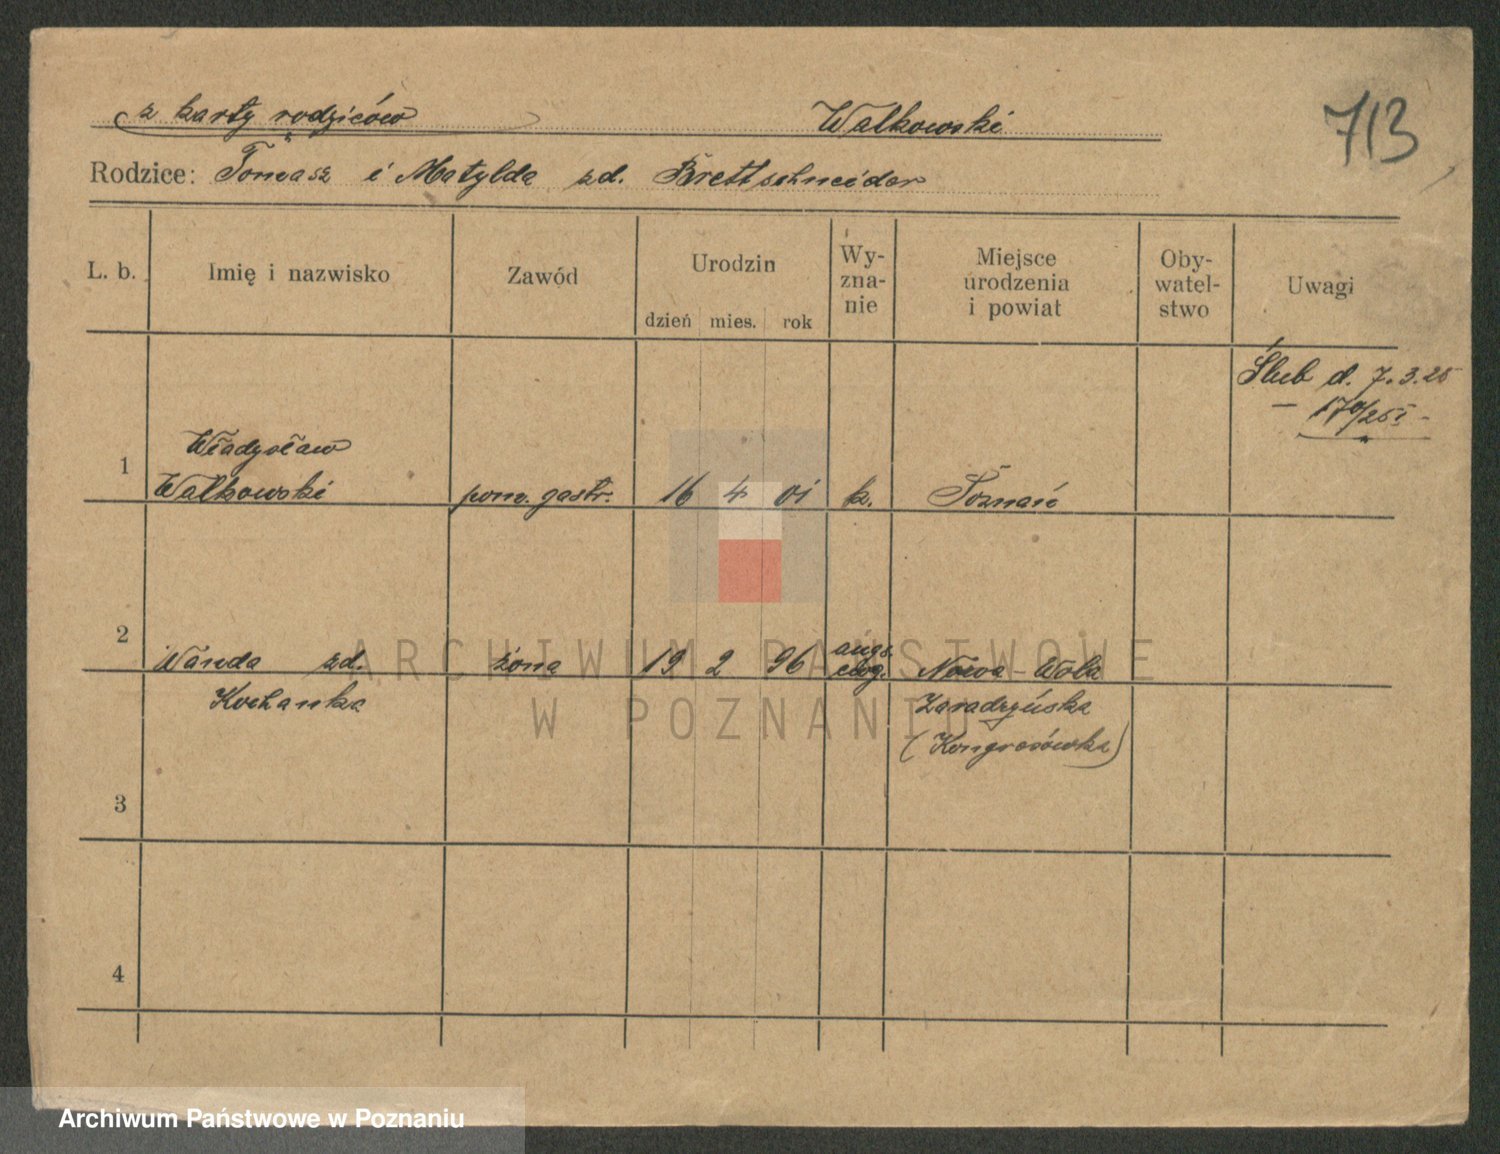 z karty rodziców Walkowski 713
Rodzice: Tomasz i Matylda zd. Brettschneider
L. b. Imię i nazwisko Zawód Urodzin dzień mies. rok Wy-zna-nie Miejsce urodzenia i powiat Oby-watel-stwo Uwagi
Ślub d. 7.3.25
1 Władysław
Walkowski pom. gastr. 16 4 01 k. Poznań
2 Wanda zd. żona 19 2 96 augs. ewg. Nowa-Wola
Kochanka Zaradzyńska
(Kongresówka)
3
4
ARCHIWUM PAŃSTWOWE
W POZNANIU
Archiwum Państwowe w Poznaniu